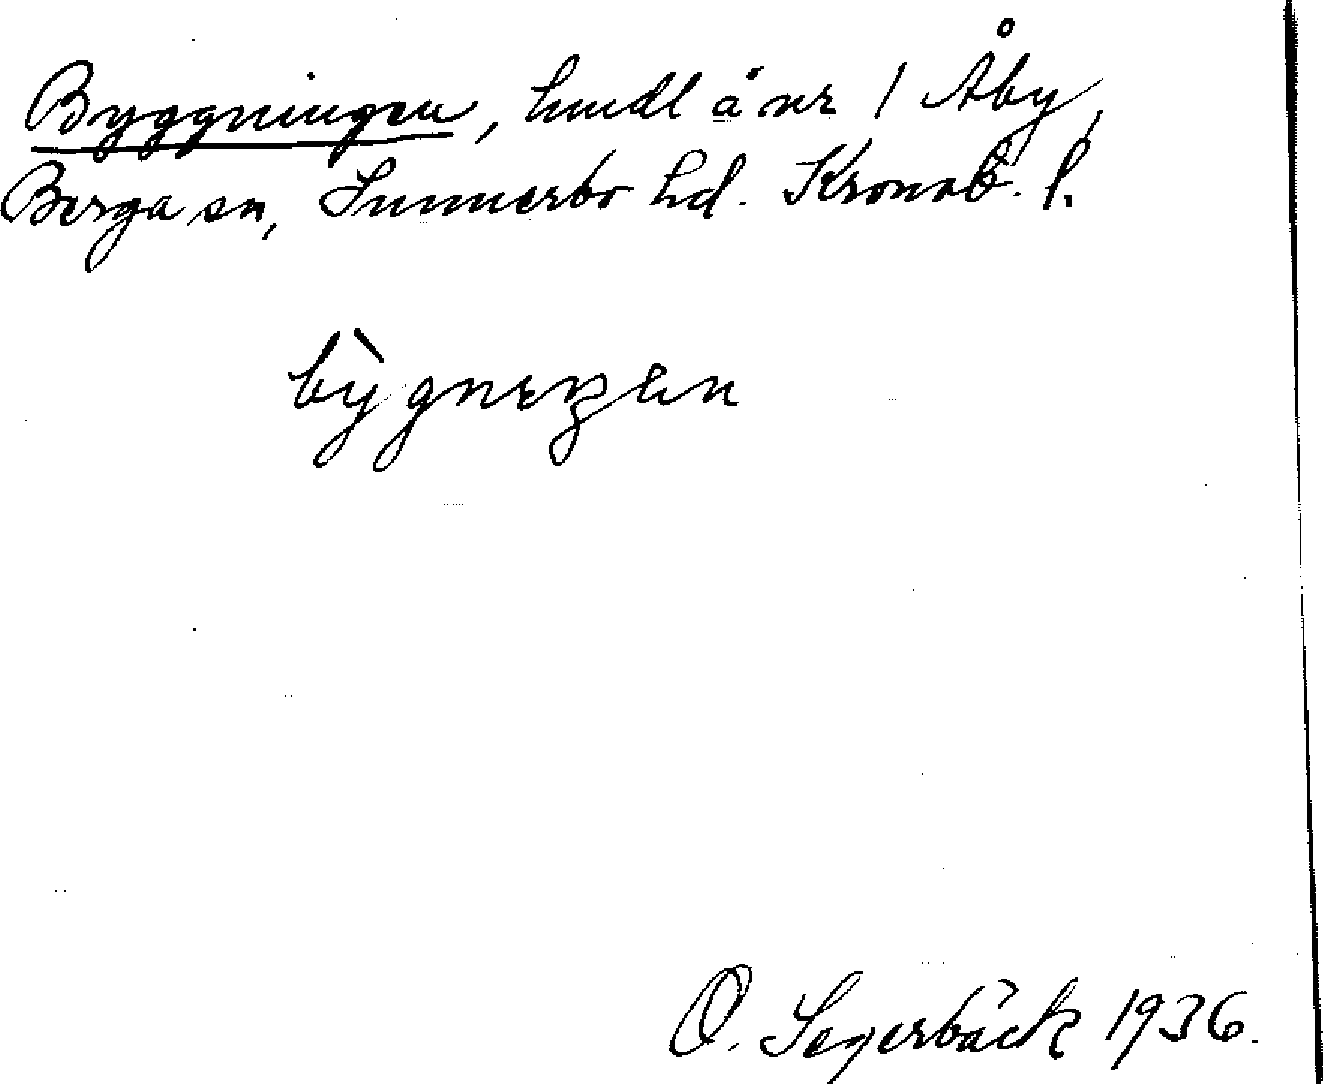 Byggningen, hmdl å nr 1 Åby,
Berga sn, Sunnerbo hd. Kronob. l.
bỳgneŋen
O. Segerbäck 1936.